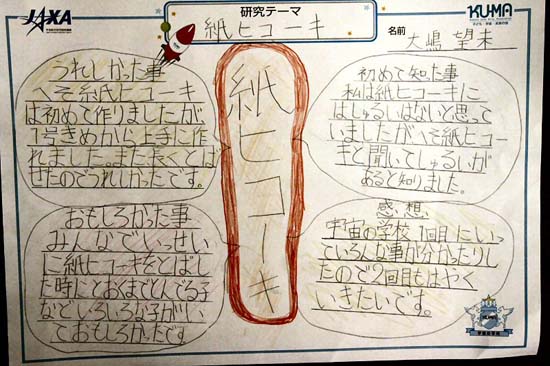 JAXA
研究テーマ
紙ヒコーキ
KUMA
名前
大嶋 望未
うれしかった事
へそ紙ヒコーキ
は初めて作りましたが、
1号きめから上手に作
れました。また長くとば
せたのでうれしかったです。
紙ヒコーキ
初めて知った事
私は紙ヒコーキに
はしゅるいはないと思って
いましたが、へそ紙ヒコー
キと聞いてしゅるいが
あると知りました。
おもしろかった事
みんなでいっせい
に紙ヒコーキをとばし
た時にとおくまでとんでる子
などいろいろな子がい
ておもしろかったです
感想
宇宙の学校1回目にいっ
ていろんな事が分かったりし
たので2回目もはやく
いきたいです。
KUMA